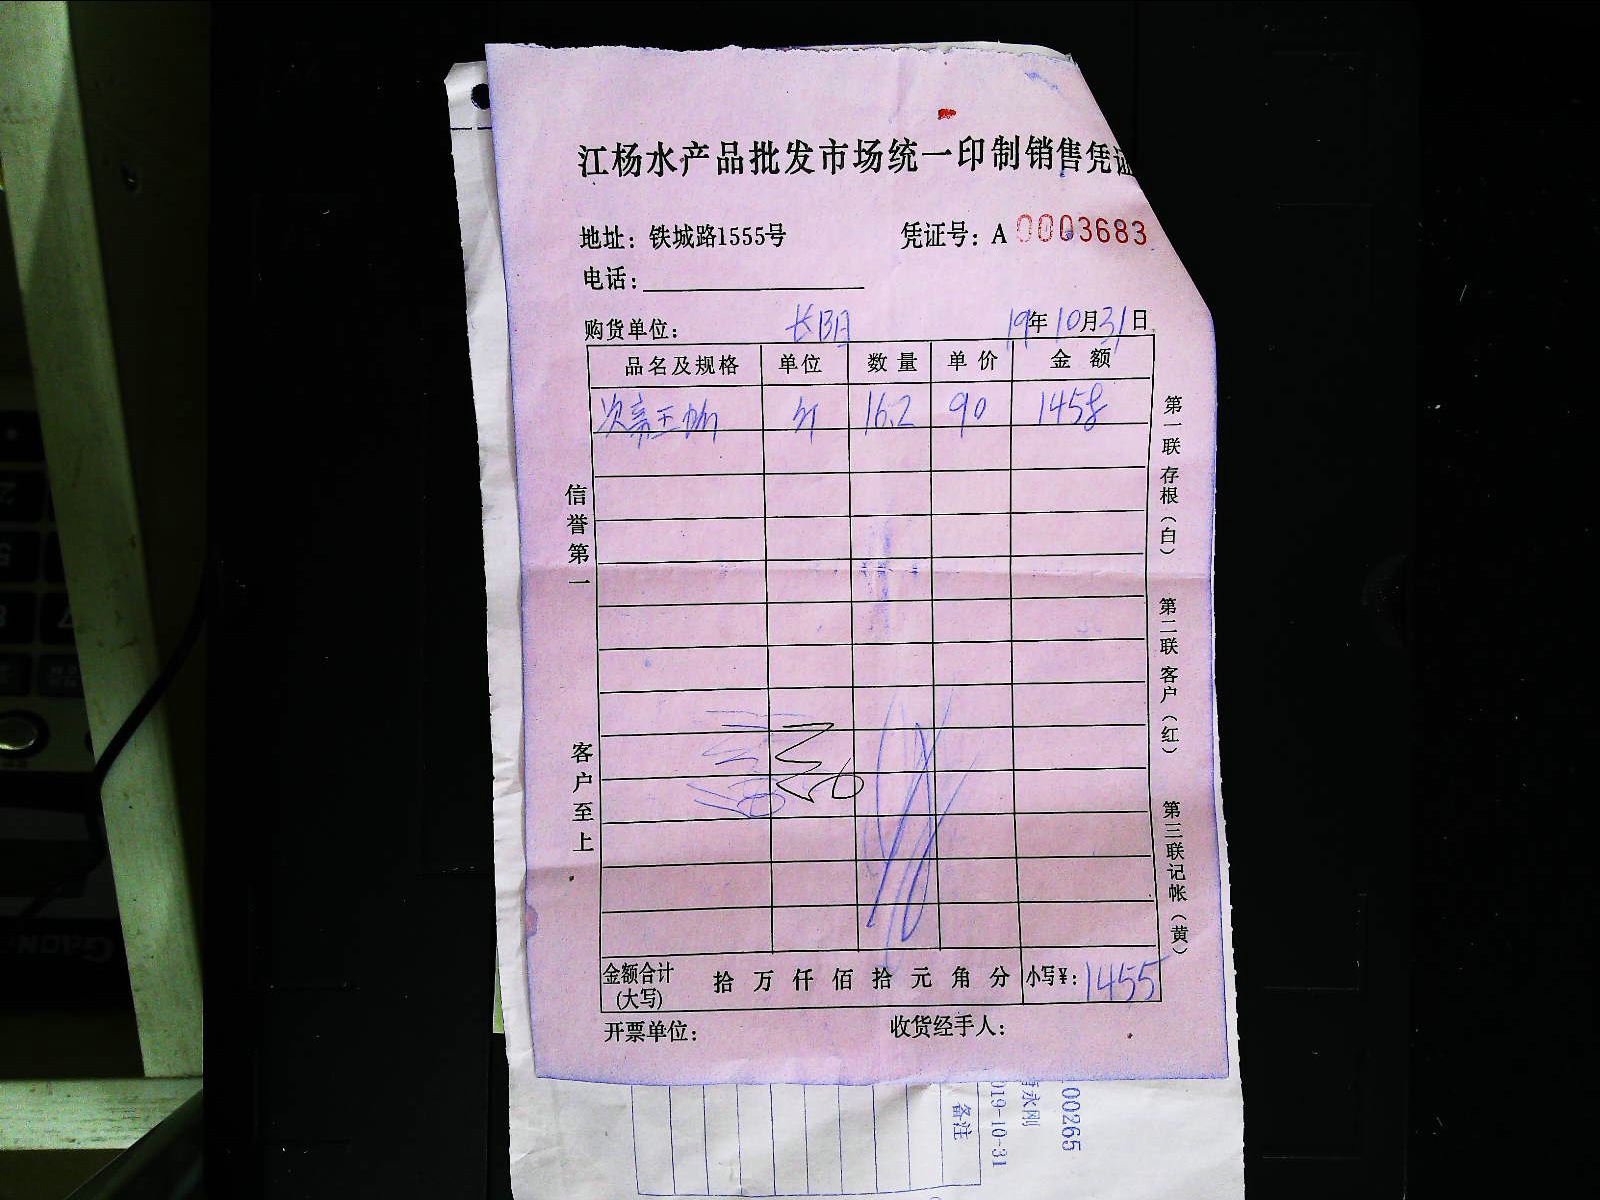 江杨水产品批发市场统一印制销售凭证
地址：铁城路1555号 凭证号：A 0003683
电话：
购货单位： 长阳 19年10月31日
品名及规格 单位 数量 单价 金额
斤 16.2 90 1458
信誉第一
客户至上
第一联 存根（白）
第二联 客户（红）
第三联 记帐（黄）
金额合计（大写） 拾 万 仟 佰 拾 元 角 分 小写￥：1455
开票单位： 收货经手人：
备注
019-10-31
永刚
00265